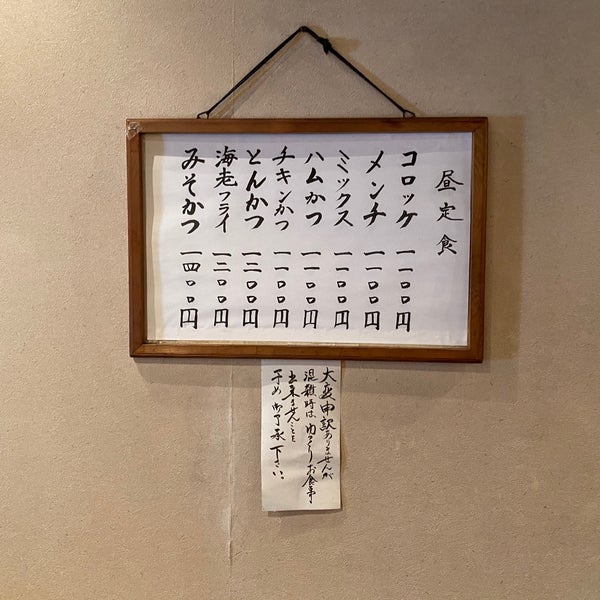 昼定食
コロッケ 一一〇〇円
メンチ 一一〇〇円
ミックス 一一〇〇円
ハムかつ 一一〇〇円
チキンかつ 一一〇〇円
とんかつ 一三〇〇円
海老フライ 一二〇〇円
みそかつ 一四〇〇円
大変申訳ありませんが
混雑時はゆっくりお食事
出来ませんことを
予め御了承下さい。